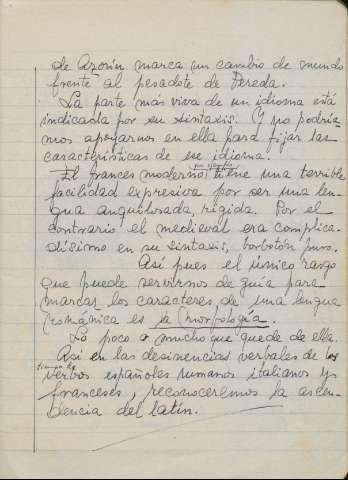 de Azorín marca un cambio de mundo
frente al pesadote de Pereda.
La parte más viva de un idioma está
indicada por su sintaxis. Y no podría-
mos apoyarnos en ella para fijar las
características de ese idioma.
por ejemplo
El francés moderno tiene una terrible
facilidad expresiva por ser una len-
gua anquilosada, rígida. Por el
contrario el medieval era complica-
dísimo en su sintaxis, borbotón puro.
Así pues el único rasgo
que puede servirnos de guía para
marcar los caracteres de una lengua
románica es la morfología.
Lo poco o mucho que quede de ella.
Así en las desinencias verbales de los
verbos españoles rumanos italianos y
franceses, reconoceremos la ascen-
dencia del latín.